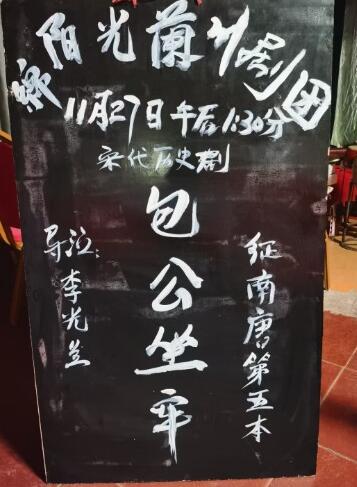 绵阳光蘭川剧团
11月27日午后1:30分
宋代历史剧
征南唐第五本
包公坐牢
导演:李光兰